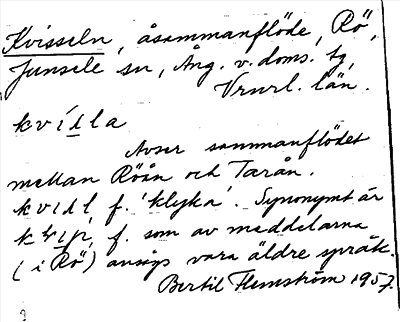 Kvisseln, åsammanflöde, Rö,
Junsele sn, Ång. v. doms. tg,
Vrnrl. län.
kvísla
Avser sammanflödet
mellan Röån och Tarån.
kvisl, f. 'klyka'. Synonymt är
f. som av meddelarna
(i Rö) ansågs vara äldre språk.
Bertil Flemström 1957.